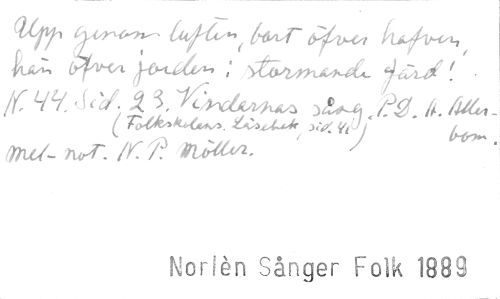 Upp genom luften, bort öfver hafven,
hän öfver jorden i stormande färd!
N. 44. Sid. 23. Vindarnas sång. P. D. A. Atter-
(Folkskolans Läsebok, sid. 41) bom.
mel-not. N. P. Möller.
Norlèn Sånger Folk 1889